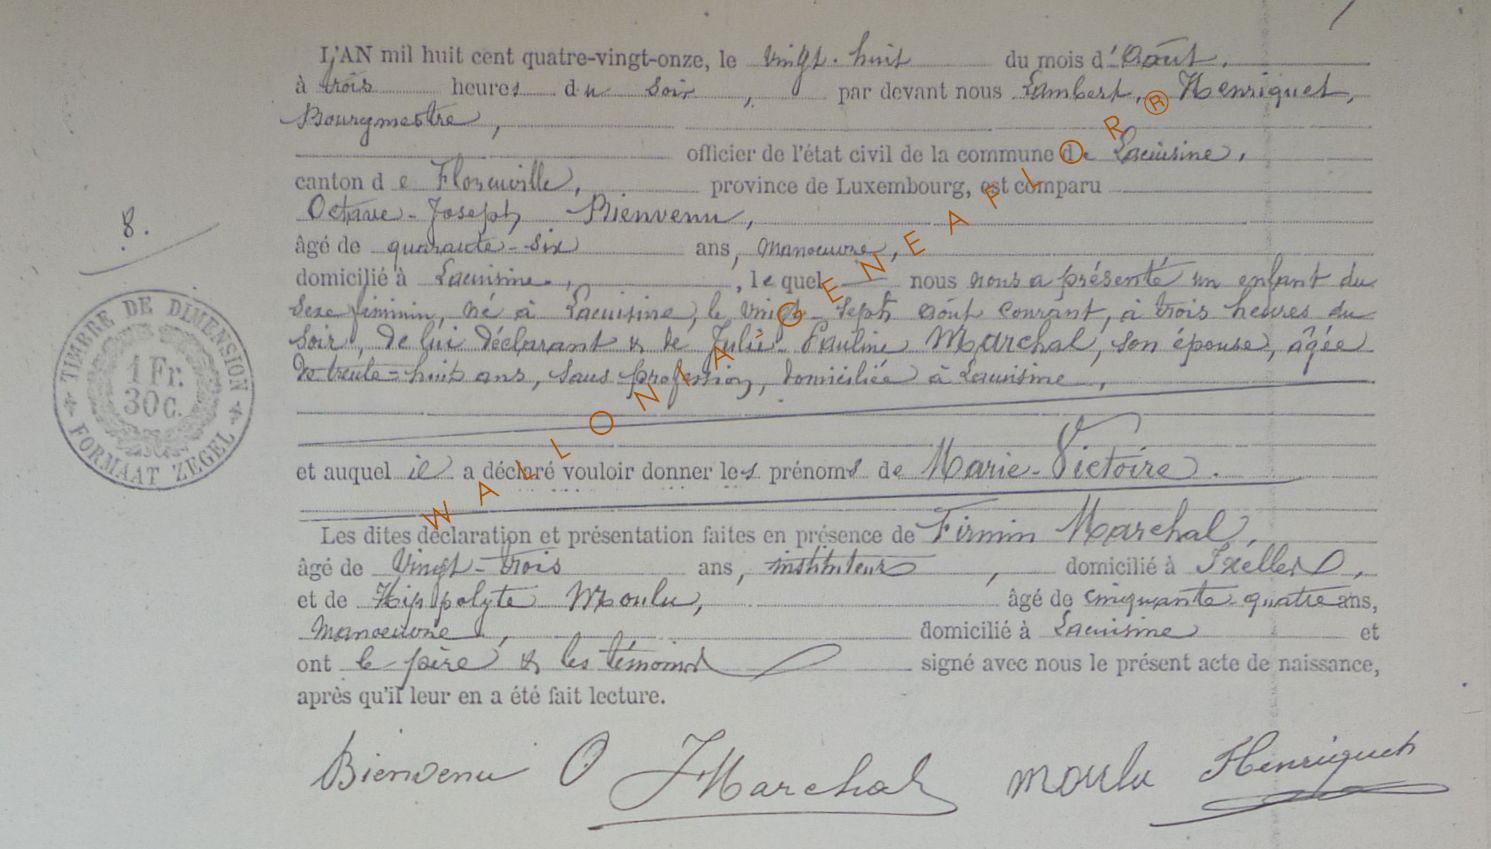 L'AN mil huit cent quatre-vingt-onze, le vingt-huit du mois d'Août,
à trois heures du soir, par devant nous Lambert, Henriquet,
Bourgmestre,
officier de l'état civil de la commune de Lacuisine,
canton de Florenville, province de Luxembourg, est comparu
Octave-Joseph Bienvenu,
8.
âgé de quarante-six ans, manoeuvre,
domicilié à Lacuisine, lequel nous nous a présenté un enfant du
sexe féminin, né à Lacuisine, le vingt-sept août courant, à trois heures du
soir, de lui déclarant & de Julie-Pauline Marchal, son épouse, âgée
de trente-huit ans, sans profession, domiciliée à Lacuisine,
TIMBRE DE DIMENSION
1 Fr.
30 C.
FORMAAT ZEGEL
et auquel il a déclaré vouloir donner les prénoms de Marie-Victoire.
Les dites déclaration et présentation faites en présence de Firmin Marchal,
âgé de Vingt-trois ans, instituteur, domicilié à Ixelles,
et de Hippolyte Moulu, âgé de cinquante-quatre ans,
manoeuvre, domicilié à Lacuisine et
ont le père & les témoins signé avec nous le présent acte de naissance,
après qu'il leur en a été fait lecture.
Bienvenu O FMarchal Moulu Henriquet
WALLONIA-GENEAFLOR®